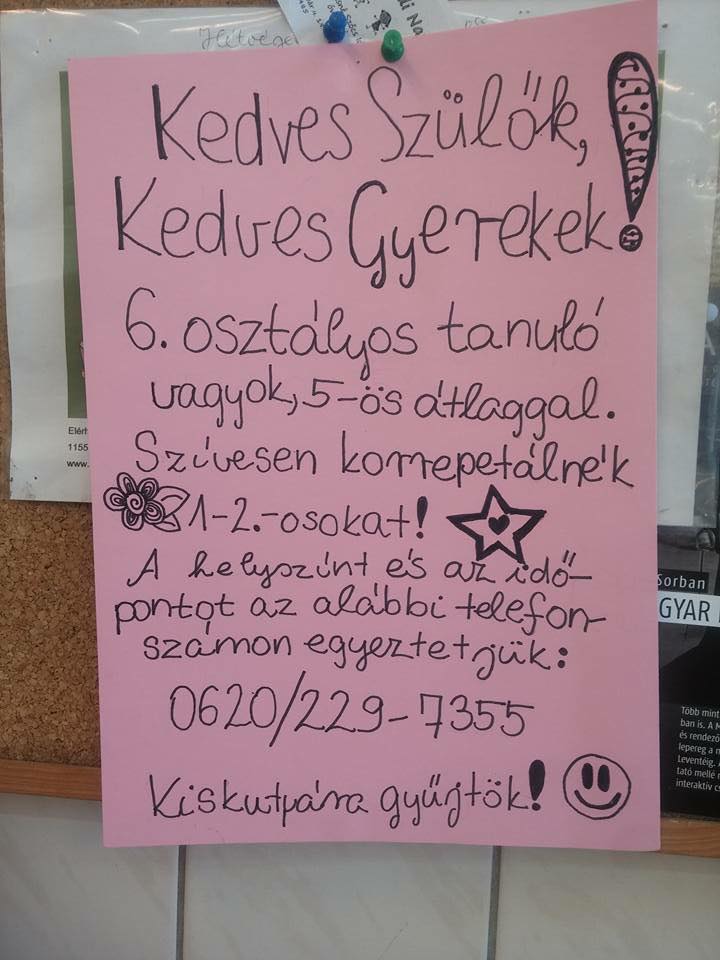 Hétvége
Kedves Szülők,
Kedves Gyerekek!
6. osztályos tanuló
vagyok, 5-ös átlaggal.
Szívesen korrepetálnék
1-2.-osokat!
A helyszínt és az idő-
pontot az alábbi telefon-
számon egyeztetjük:
0620/229-7355
Kiskutyára gyűjtök!
1155
www.
Sorban
GYAR
Több mint
ban is. A M
és rendező
lepereg a n
Leventéig. A
tató mellé
interaktív c